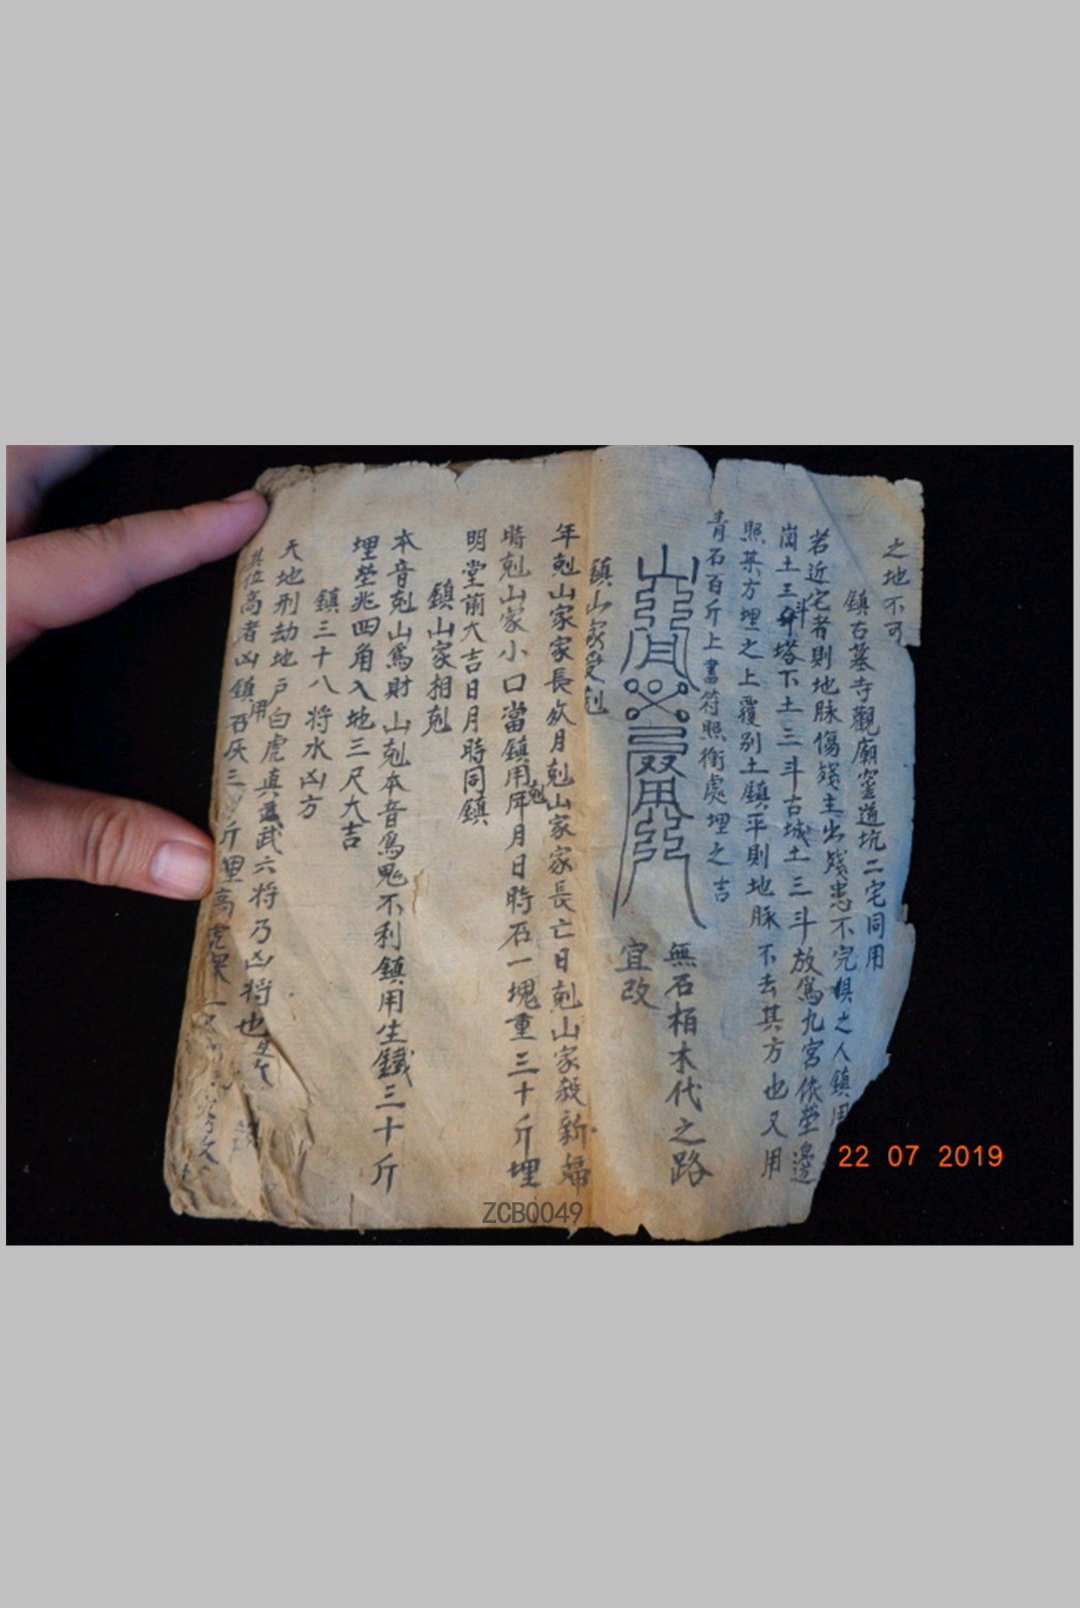 之地不可
鎮古墓寺觀廟窑道坑二宅同用
若近宅者則地脉傷殘主出殘患不完俱之人鎮用
崗土三斗塔下土三斗古城土三斗放為九宮依塋邊
照某方埋之上覆别土鎮平則地脉不去其方也又用
青石百斤上書符照衝處埋之吉
無石栢木代之路
宜改
鎮山家受剋
年剋山家家長亡月剋山家家長亡日剋山家殺新婦
時剋山家小口當鎮用剋年月日時石一塊重三十斤埋
明堂前大吉日月時同鎮
鎮山家相剋
本音剋山為財山剋本音為鬼不利鎮用生鐵三十斤
埋塋兆四角入地三尺大吉
鎮三十八將水凶方
天地刑劫地户白虎真武六將乃凶將也
其位高者凶鎮用石灰三斤埋高處
22 07 2019
ZCB0049